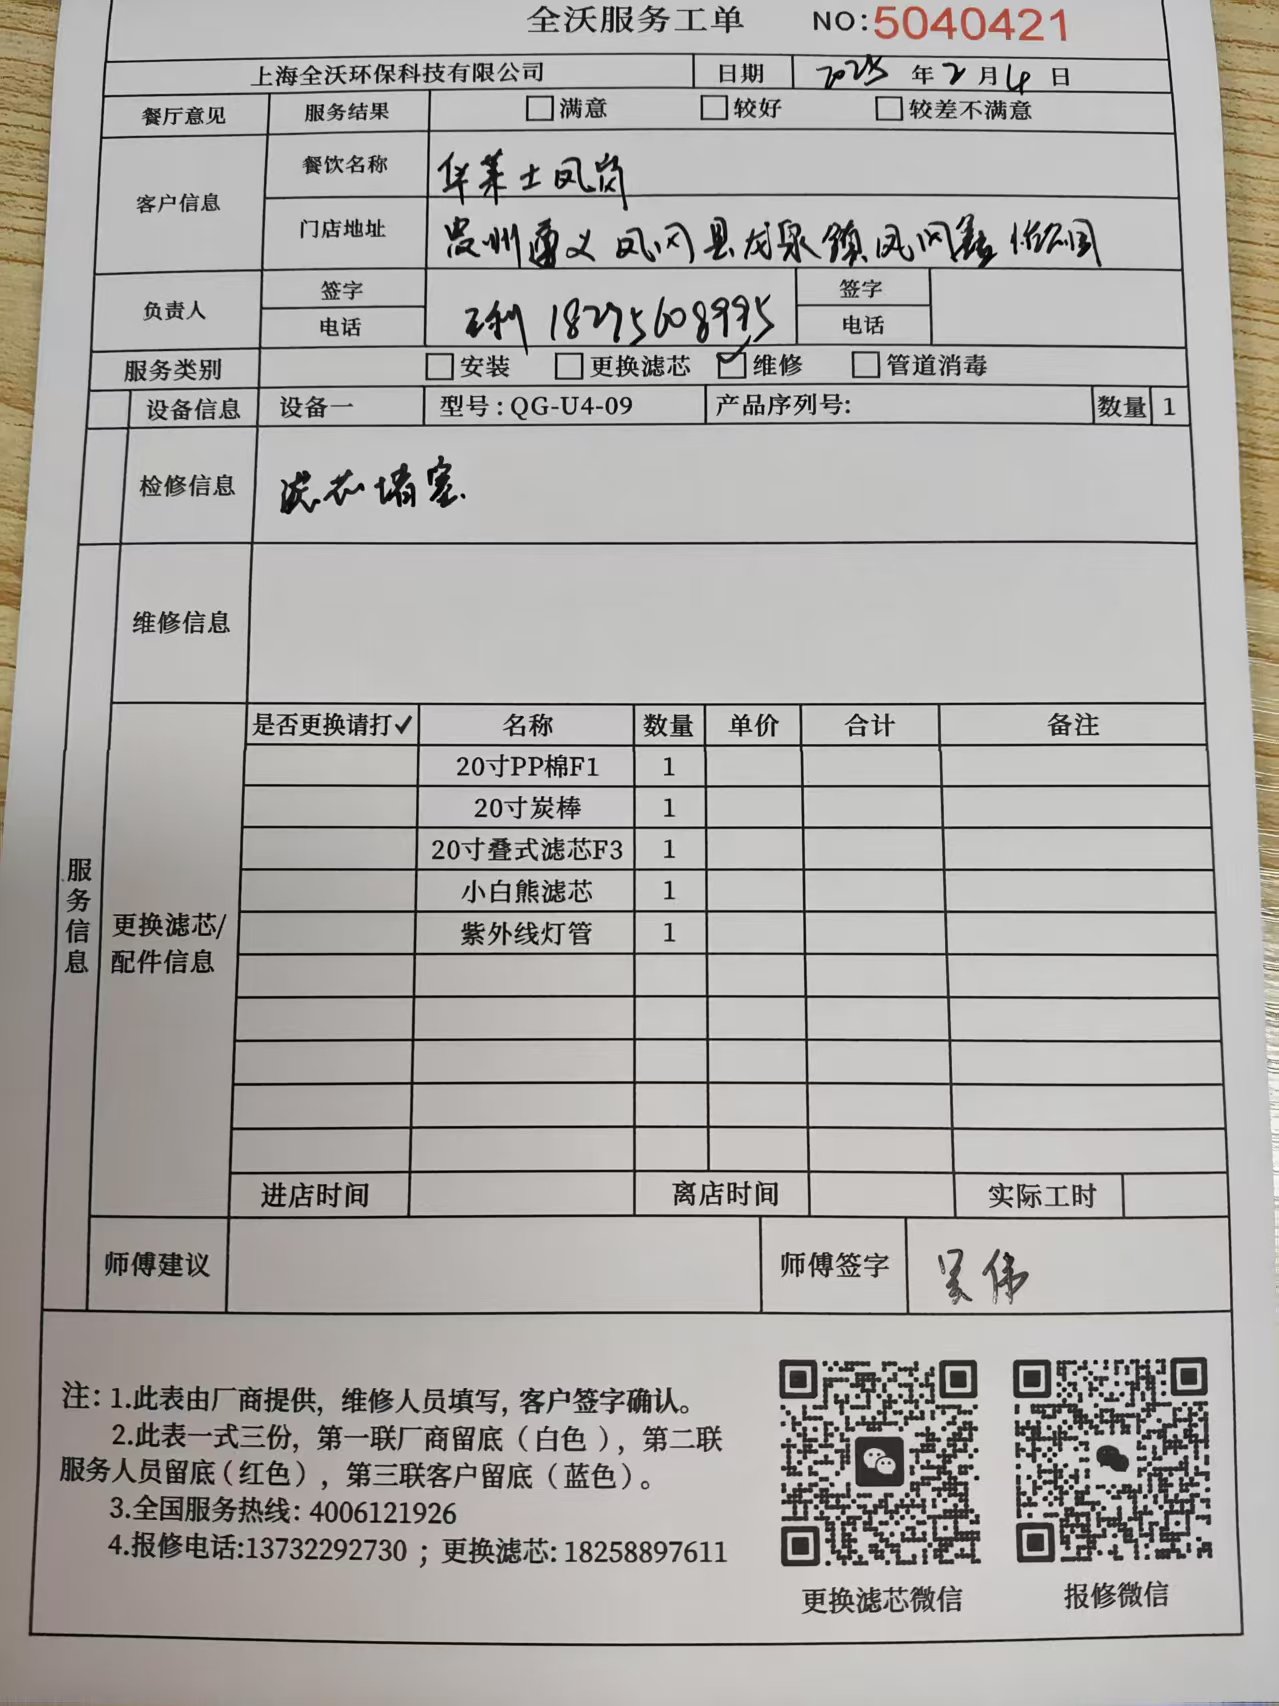 全沃服务工单 NO:5040421
上海全沃环保科技有限公司 日期 2025年2月4日
餐厅意见 服务结果 □满意 □较好 □较差不满意
客户信息 餐饮名称 华莱士凤岗
门店地址 贵州遵义凤冈县龙泉镇凤冈
负责人 签字 王利 18275608995 签字
电话 电话
服务类别 □安装 □更换滤芯 ☑维修 □管道消毒
设备信息 设备一 型号:QG-U4-09 产品序列号: 数量 1
检修信息 滤芯堵塞
维修信息
服务信息
更换滤芯/配件信息
是否更换请打✓ 名称 数量 单价 合计 备注
20寸PP棉F1 1
20寸炭棒 1
20寸叠式滤芯F3 1
小白熊滤芯 1
紫外线灯管 1
进店时间 离店时间 实际工时
师傅建议 师傅签字 吴伟
注:1.此表由厂商提供,维修人员填写,客户签字确认。
2.此表一式三份,第一联厂商留底(白色),第二联
服务人员留底(红色),第三联客户留底(蓝色)。
3.全国服务热线:4006121926
4.报修电话:13732292730;更换滤芯:18258897611
更换滤芯微信 报修微信